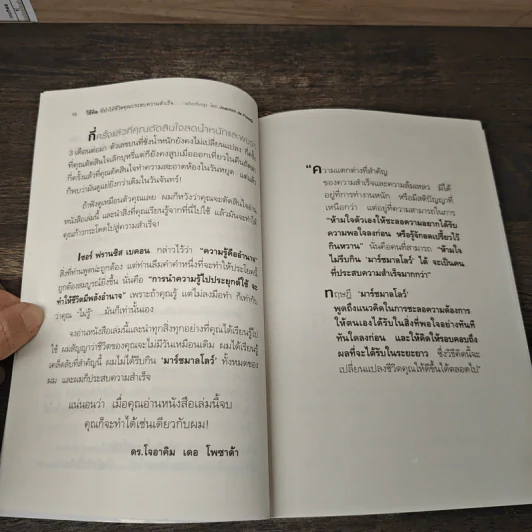 วิธีคิด ที่ทำให้ชีวิตคุณประสบความสำเร็จ
กี่ครั้งแล้วที่คุณตัดสินใจลดน้ำหนักและพบว่า
3 เดือนต่อมา ตัวเลขบนที่ชั่งน้ำหนักยังคงไม่เปลี่ยนแปลง กี่ครั้ง
ที่คุณตัดสินใจเลิกบุหรี่แต่ก็ยังคงสูบเมื่อออกเที่ยวในคืนถัดมา
กี่ครั้งแล้วที่คุณตัดสินใจทำความสะอาดห้องในวันหยุด แต่แล้ว
ก็พบว่ามันดูแย่ยิ่งกว่าเดิมในวันจันทร์!
ถ้าฟังดูเหมือนตัวคุณเลย ผมก็หวังว่าคุณจะตัดสินใจอ่าน
หนังสือเล่มนี้ และนำสิ่งที่คุณเรียนรู้จากที่นี่ไปใช้ แล้วมันจะทำให้
คุณก้าวกระโดดไปสู่ความสำเร็จ!
เซอร์ ฟรานซิส เบคอน กล่าวไว้ว่า "ความรู้คืออำนาจ"
สิ่งที่ท่านพูดนะถูกต้อง แต่ท่านลืมคำคำหนึ่งที่จะทำให้ประโยคนี้
ถูกต้องสมบูรณ์ยิ่งขึ้น นั่นคือ "การนำความรู้ไปประยุกต์ใช้ จะ
ทำให้ชีวิตมีพลังอำนาจ" เพราะถ้าคุณรู้ แต่ไม่ลงมือทำ ก็เท่ากับ
ว่าคุณ 'ไม่รู้' ...มันก็เท่านั้นเอง
จงอ่านหนังสือเล่มนี้และนำทุกสิ่งทุกอย่างที่คุณได้เรียนรู้ไป
ใช้ ผมสัญญาว่าชีวิตของคุณจะไม่มีวันเหมือนเดิม ผมได้เรียนรู้
เคล็ดลับที่สำคัญนี้ ผมไม่ได้รับกิน 'มาร์ชมาลโลว์' ทั้งหมดของ
ผม และผมก็ประสบความสำเร็จ
แน่นอนว่า เมื่อคุณอ่านหนังสือเล่มนี้จบ
คุณก็จะทำได้เช่นเดียวกับผม!
ดร.โจอาคิม เดอ โพซาด้า
"ความแตกต่างที่สำคัญ
ของความสำเร็จและความล้มเหลว มิได้
อยู่ที่การทำงานหนัก หรือมีสติปัญญาที่
เหนือกว่า แต่อยู่ที่ความสามารถในการ
"ห้ามใจตัวเองให้ชะลอความอยากได้รับ
ความพอใจลงก่อน หรือรู้จักอดเปรี้ยวไว้
กินหวาน" นั่นคือคนที่สามารถ "ห้ามใจ
ไม่รีบกิน 'มาร์ชมาลโลว์' ได้ จะเป็นคน
ที่ประสบความสำเร็จมากกว่า"
ทฤษฎี 'มาร์ชมาลโลว์'
พูดถึงแนวคิดในการชะลอความต้องการ
ให้ตนเองได้รับในสิ่งที่พอใจอย่างทันที
ทันใดลงก่อน และให้คิดให้รอบคอบถึง
ผลที่จะได้รับในระยะยาว ซึ่งวิธีคิดนี้จะ
เปลี่ยนแปลงชีวิตคุณให้ดีขึ้นได้ตลอดไป"